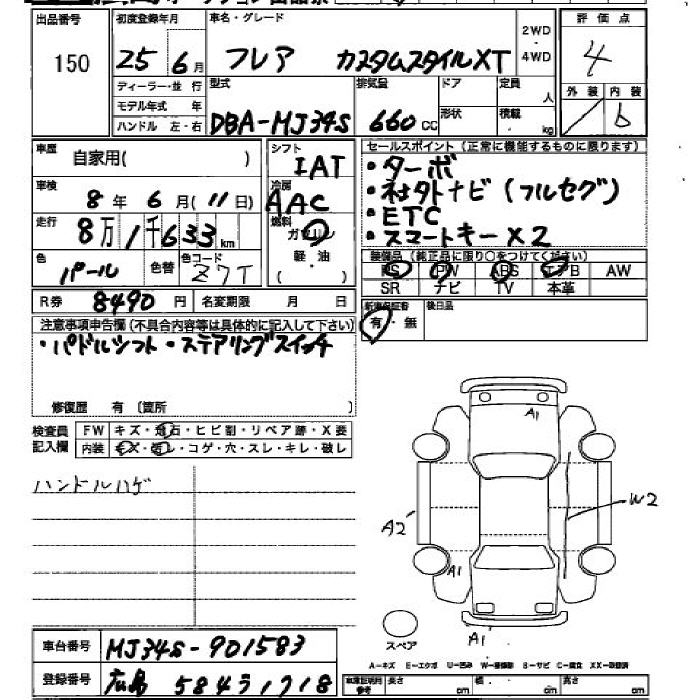 出品番号
150
初度登録年月
25 6月
ディーラー・並 行
モデル年式 年
ハンドル 左・右
車名・グレード
フレア カスタムスタイルXT
2WD
・
4WD
型式
DBA-MJ34S
排気量
660 cc
ドア
形状
定員
人
積載
kg
評 価 点
4
外 装 内 装
b
車歴
自家用( )
車検
8年 6月(11日)
走行
8万1千633km
色
パール
色替
色コード
Z7T
シフト
IAT
冷房
AAC
燃料
ガソリン
軽・油
( )
R券 8490 円 名変期限 月 日
セールスポイント(正常に機能するものに限ります)
・ターボ
・社外ナビ(フルセグ)
・ETC
・スマートキー×2
装備品(純正品に限り○をつけてください)
PS PW ABS エアB AW
SR ナビ TV 本革
新車保証書
有・無
後日品
注意事項申告欄(不具合内容等は具体的に記入して下さい)
・パドルシフト・ステアリングスイッチ
修復歴 有〔箇所 〕
検査員
記入欄
FW キズ・飛石・ヒビ割・リペア跡・X要
内装 キズ・汚レ・コゲ・穴・スレ・キレ・破レ
ハンドルハゲ
A1
W2
A2
A1
A1
スペア
A-キズ E-エクボ U-凹み W-補修跡 B-サビ C-腐食 XX-取替済
車台番号 MJ34S-901583
登録番号 広島 584う1718
車庫証明用
参考
長さ cm 幅 cm 高さ cm